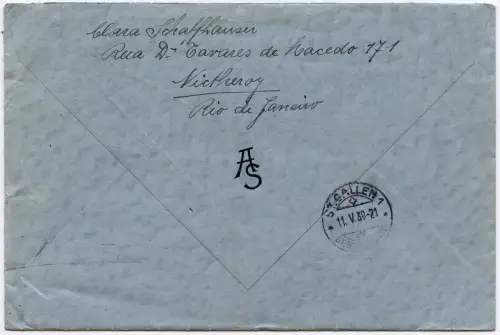 Clara Schaffhauser
Rua Dr Tavares de Macedo 171
Nictheroy
Rio de Janeiro
AS
ST. GALLEN 1
11. V. 39-21